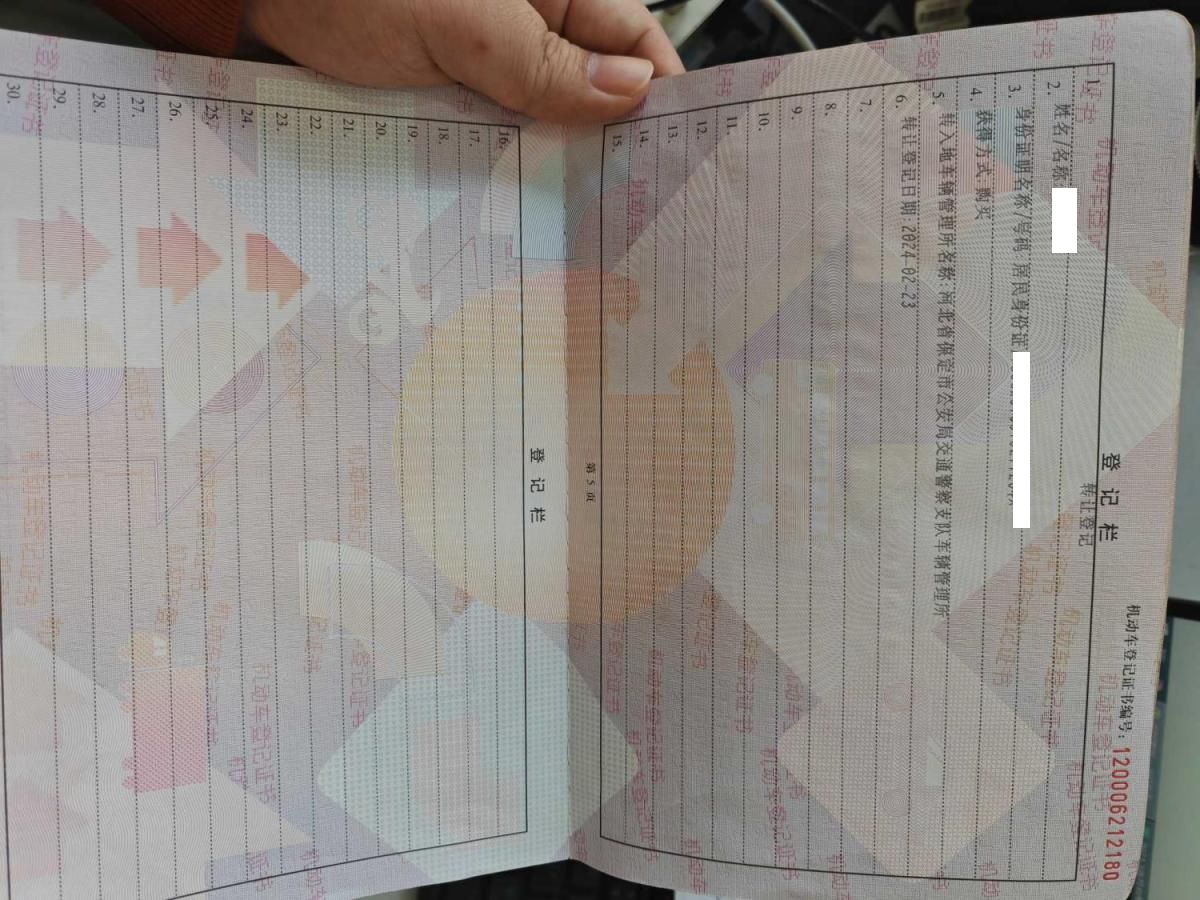 机动车登记证书编号：120006212180
登 记 栏
转让登记
2. 姓名/名称
3. 身份证明名称/号码:居民身份证
4. 获得方式:购买
5. 转入地车辆管理所名称:河北省保定市公安局交通警察支队车辆管理所
6. 转让登记日期:2024-02-23
7.
8.
9.
10.
11.
12.
13.
14.
15.
第 5 页
登 记 栏
16.
17.
18.
19.
20.
21.
22.
23.
24.
25.
26.
27.
28.
29.
30.